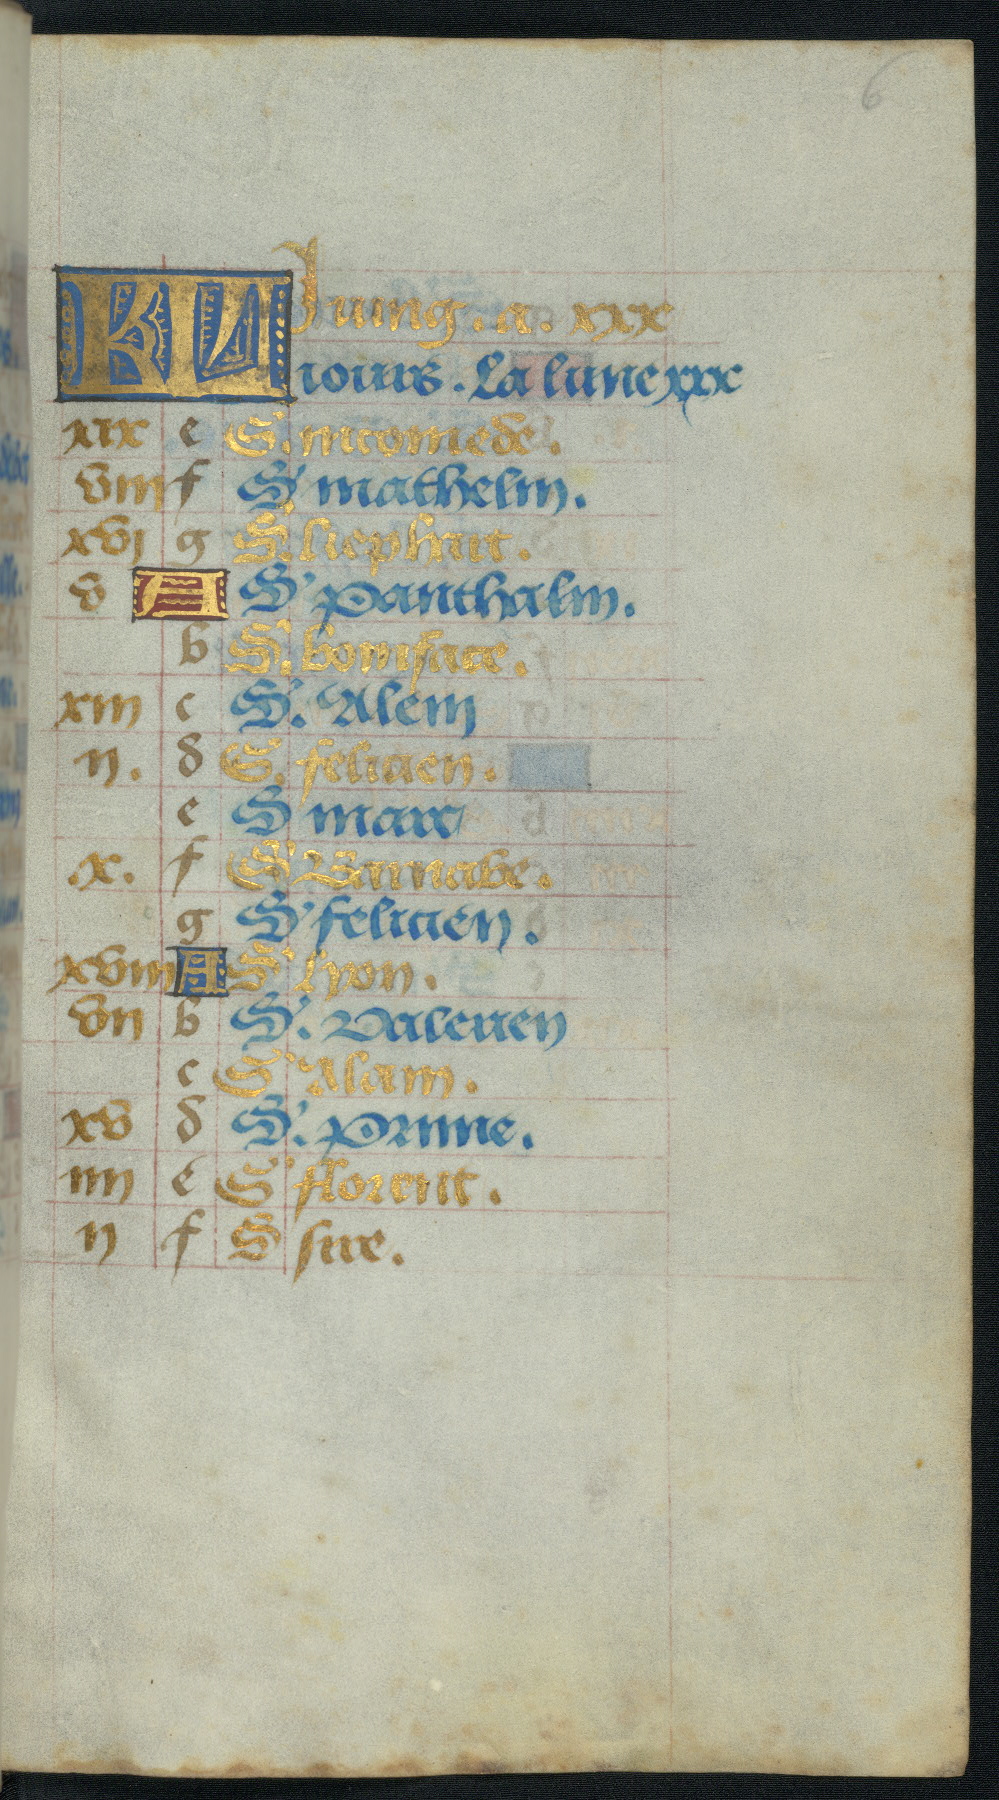 6
KL Juing. a. xxx
iours. La lune xxx
xix e S. nicomede.
viii f S mathelin.
xvi g S. liephart.
v A S panthalin.
b S. boniface.
xiii c S. Alein
ii. d S. felicien.
e S marc
x. f S Barnabe.
g S felicien.
xviii A S lyon.
vii b S. Valerien
c S Alam.
xv d S. prime.
iiii e S florent.
ii f S sire.